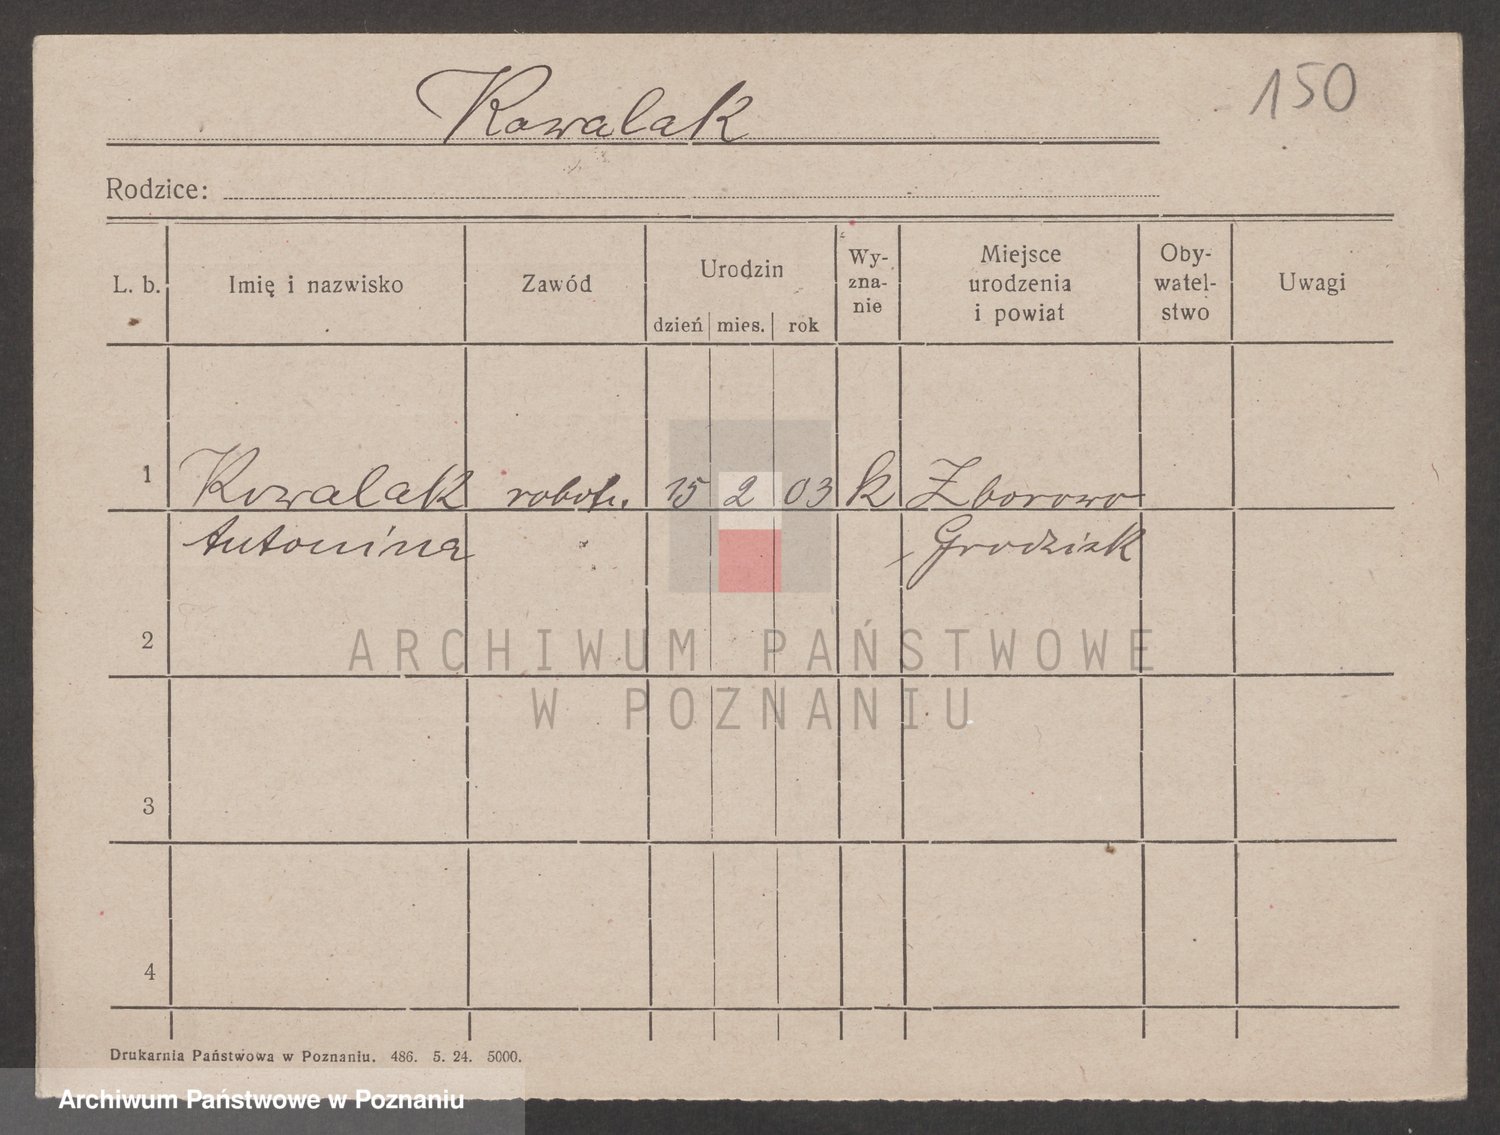 Kowalak
150
Rodzice:
L. b.
Imię i nazwisko
Zawód
Urodzin
dzień
mies.
rok
Wy-
zna-
nie
Miejsce
urodzenia
i powiat
Oby-
watel-
stwo
Uwagi
1
Kowalak
robotn.
15
2
03
k
Zborowo
Antonina
Grodzisk
2
ARCHIWUM PAŃSTWOWE
W POZNANIU
3
4
Drukarnia Państwowa w Poznaniu. 486. 5. 24. 5000.
Archiwum Państwowe w Poznaniu